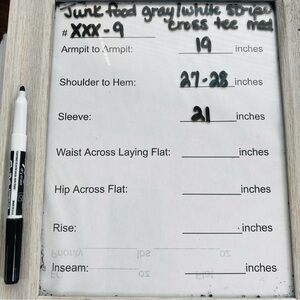 Junk food gray/white stripe
# XXX-9 cross tee med
Armpit to Armpit: 19 inches
Shoulder to Hem: 27-28 inches
Sleeve: 21 inches
Waist Across Laying Flat: inches
Hip Across Flat: inches
Rise: inches
Priority lbs oz
Inseam: inches
oz Flat